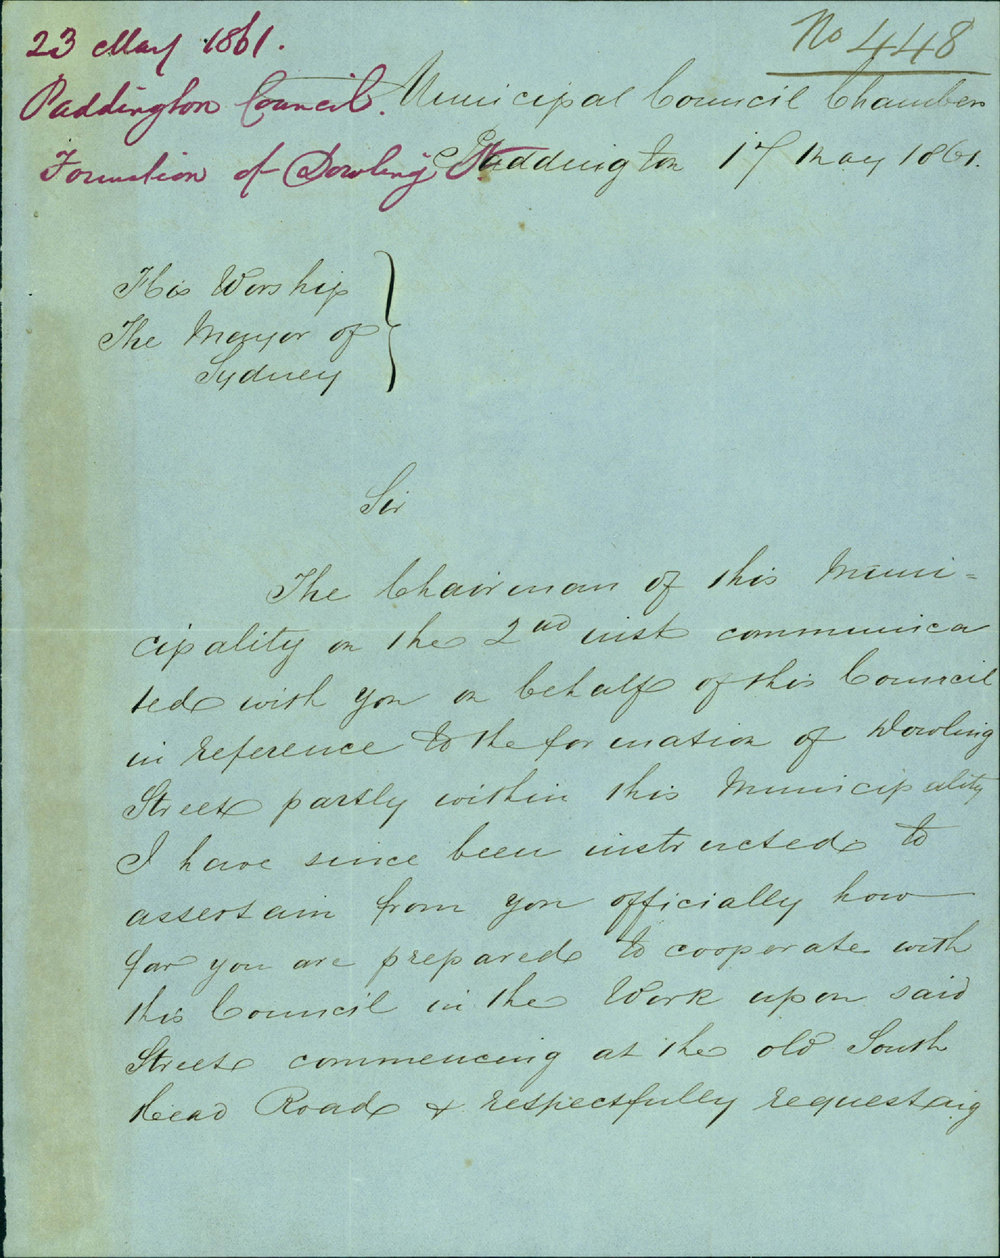 23 May 1861.
Paddington Council.
Formation of Dowling St
No 448
Municipal Council Chambers
Paddington 17 May 1861.
His Worship
The Mayor of
Sydney
Sir
The Chairman of this Muni-
cipality on the 2nd inst communica
ted with you on behalf of this Council
in reference to the formation of Dowling
Street partly within this Municipality
I have since been instructed to
assertain from you officially how
far you are prepared to cooperate with
this Council in the Work upon said
Street commencing at the old South
Head Road & respectfully requesting